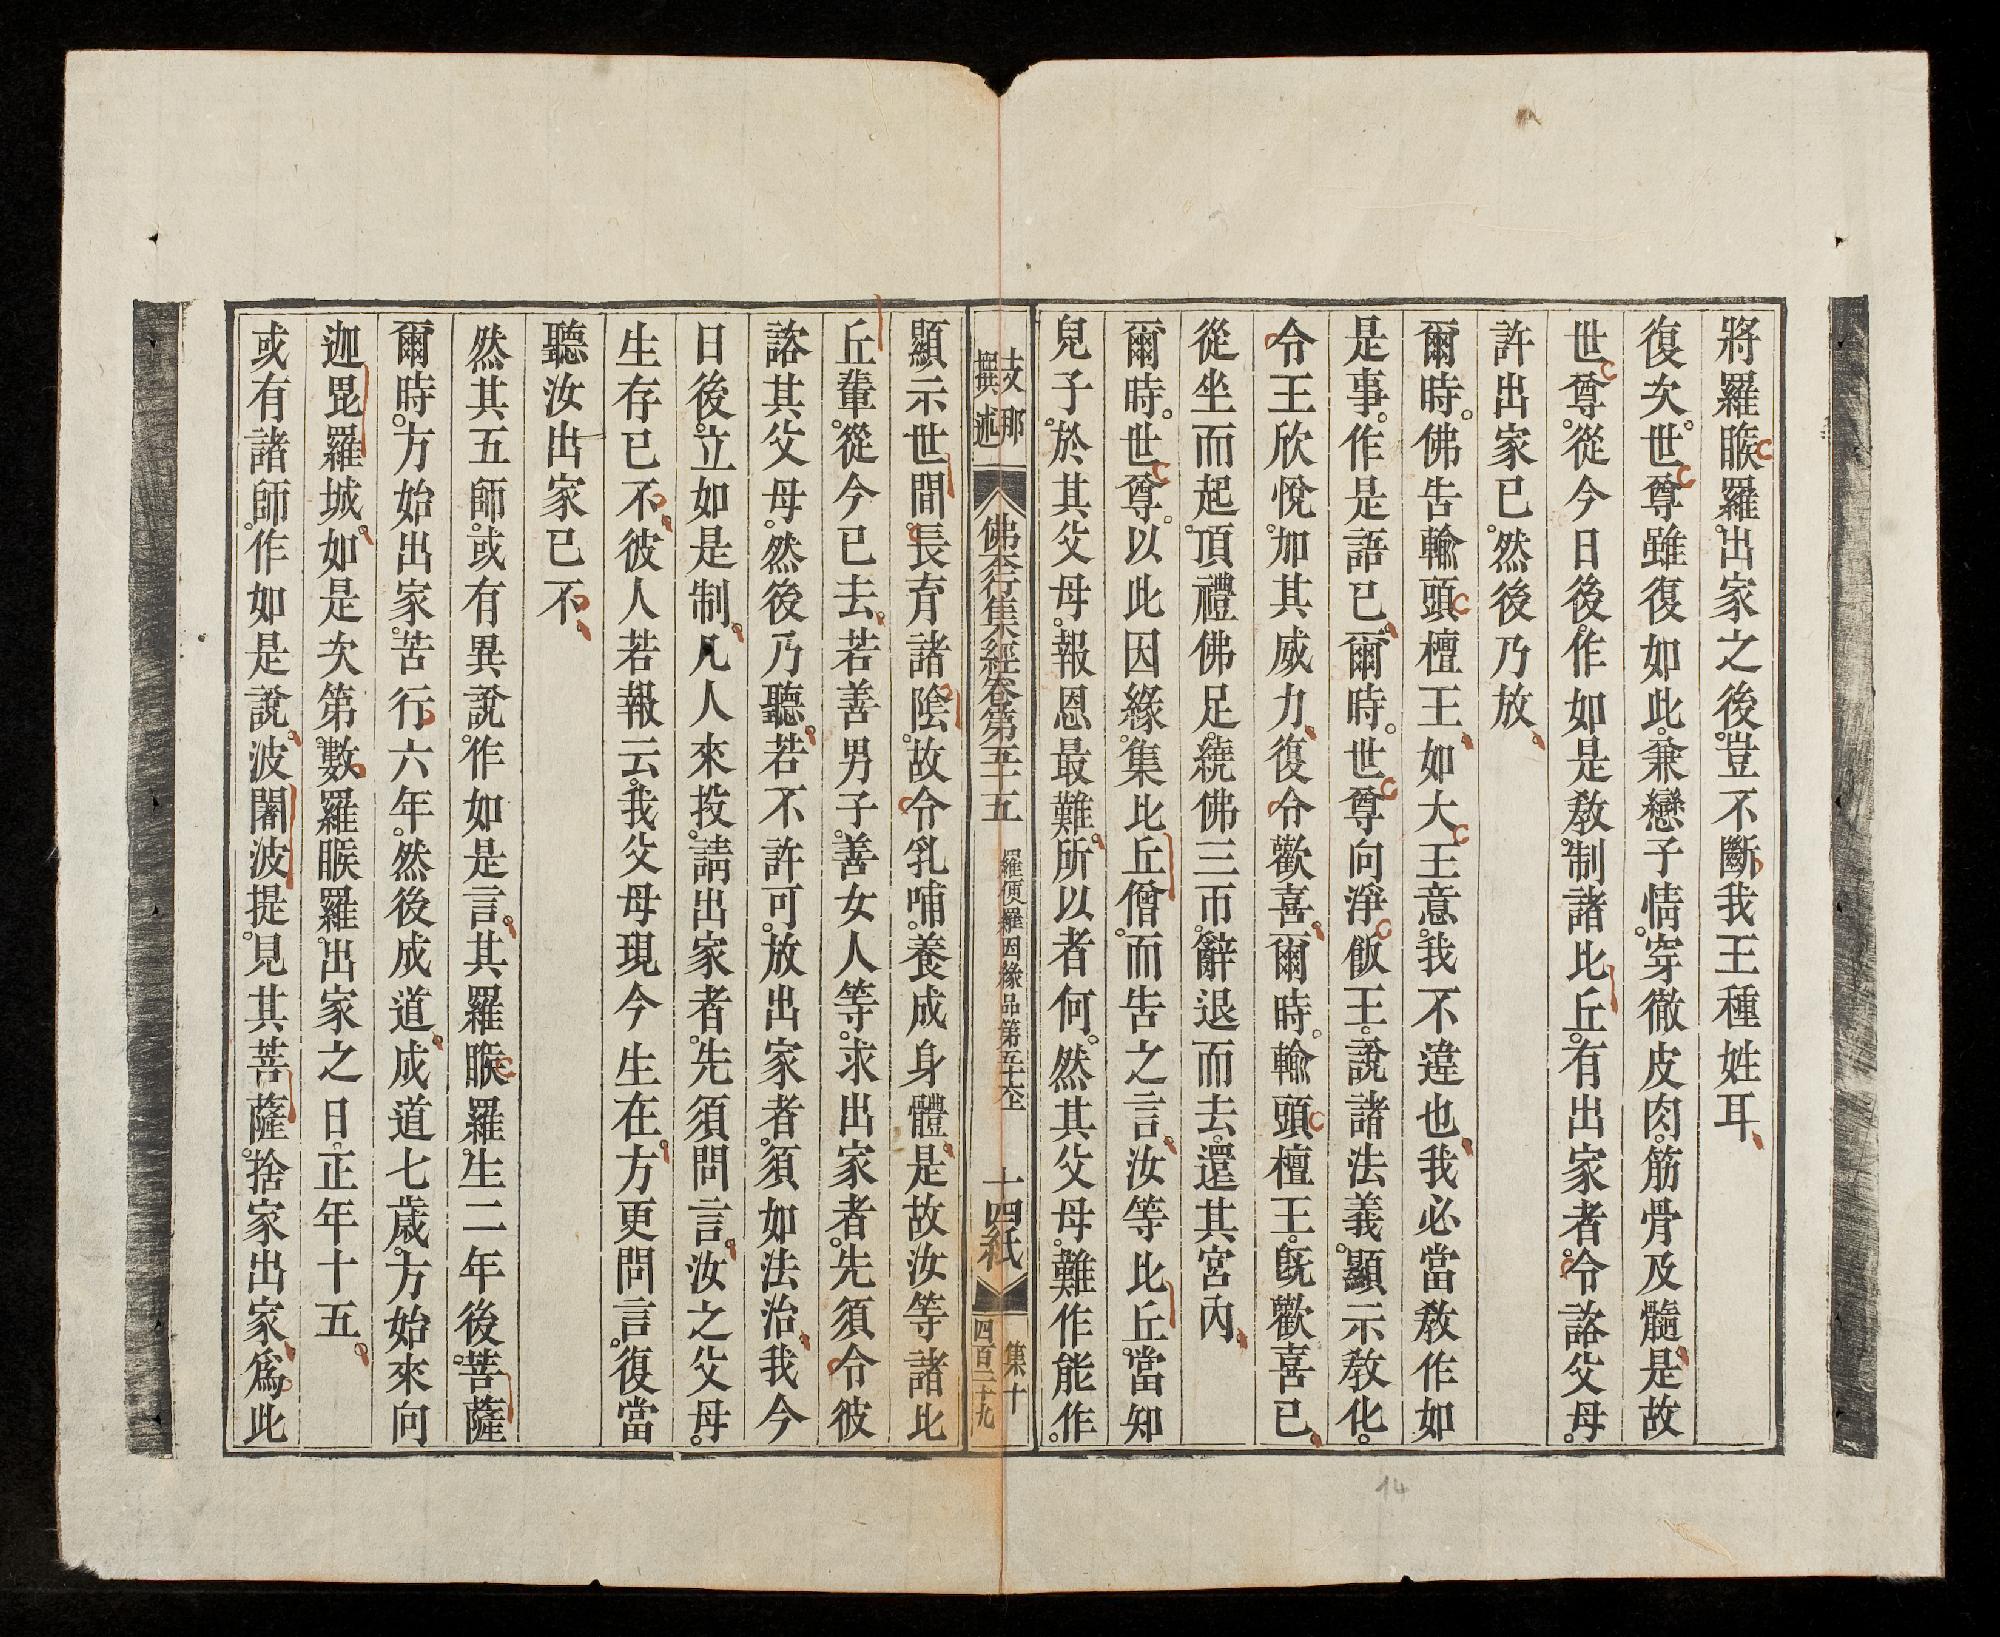 將羅睺羅。出家之後。豈不斷我王種姓耳
復次。世尊雖復如此。兼戀子情。穿徹皮肉。筋骨及髓。是故
世尊。從今日後。作如是教。制諸比丘。有出家者。令諮父母。
許出家已。然後乃放
爾時。佛告輸頭檀王。如大王意。我不違也。我必當教作如
是事。作是語已。爾時。世尊向淨飯王。說諸法義。顯示教化。
令王欣悅。加其威力。復令歡喜。爾時。輸頭檀王。既歡喜已。
從坐而起。頂禮佛足。繞佛三帀。辭退而去。還其宮內
爾時。世尊。以此因緣。集比丘僧。而告之言。汝等比丘。當知
兒子。於其父母。報恩最難。所以者何。然其父母。難作能作。
支那
撰述
佛本行集經卷第五十五
羅睺羅因緣品第五十六上
十四紙
集十
四百二十九
顯示世間。長育諸陰。故令乳哺。養成身體。是故汝等諸比
丘輩。從今已去。若善男子。善女人等。求出家者。先須令彼
諮其父母。然後乃聽。若不許可。放出家者。須如法治。我今
日後。立如是制。凡人來投。請出家者。先須問言。汝之父母。
生存已不。彼人若報云。我父母現今生在。方更問言。復當
聽汝出家已不
然其五師。或有異說。作如是言。其羅睺羅。生二年後。菩薩
爾時。方始出家。苦行六年。然後成道。成道七歲。方始來向
迦毘羅城。如是次第。數羅睺羅。出家之日。正年十五。
或有諸師。作如是說。波闍波提。見其菩薩。捨家出家。為此
14